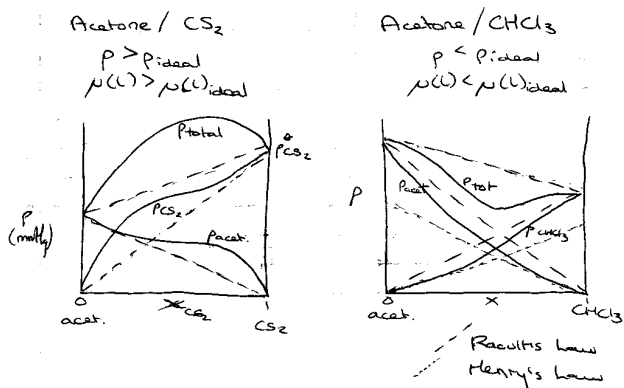 Acetone / CS₂
p > p ideal
μ(l) > μ(l) ideal
P total
P*CS₂
PCS₂
Pacet.
P
(mmHg)
0
XCS₂
1
acet.
CS₂
Acetone / CHCl₃
p < p ideal
μ(l) < μ(l) ideal
P
Pacet
Ptot
PCHCl₃
0
x
1
acet.
CHCl₃
Raoult's Law
Henry's Law